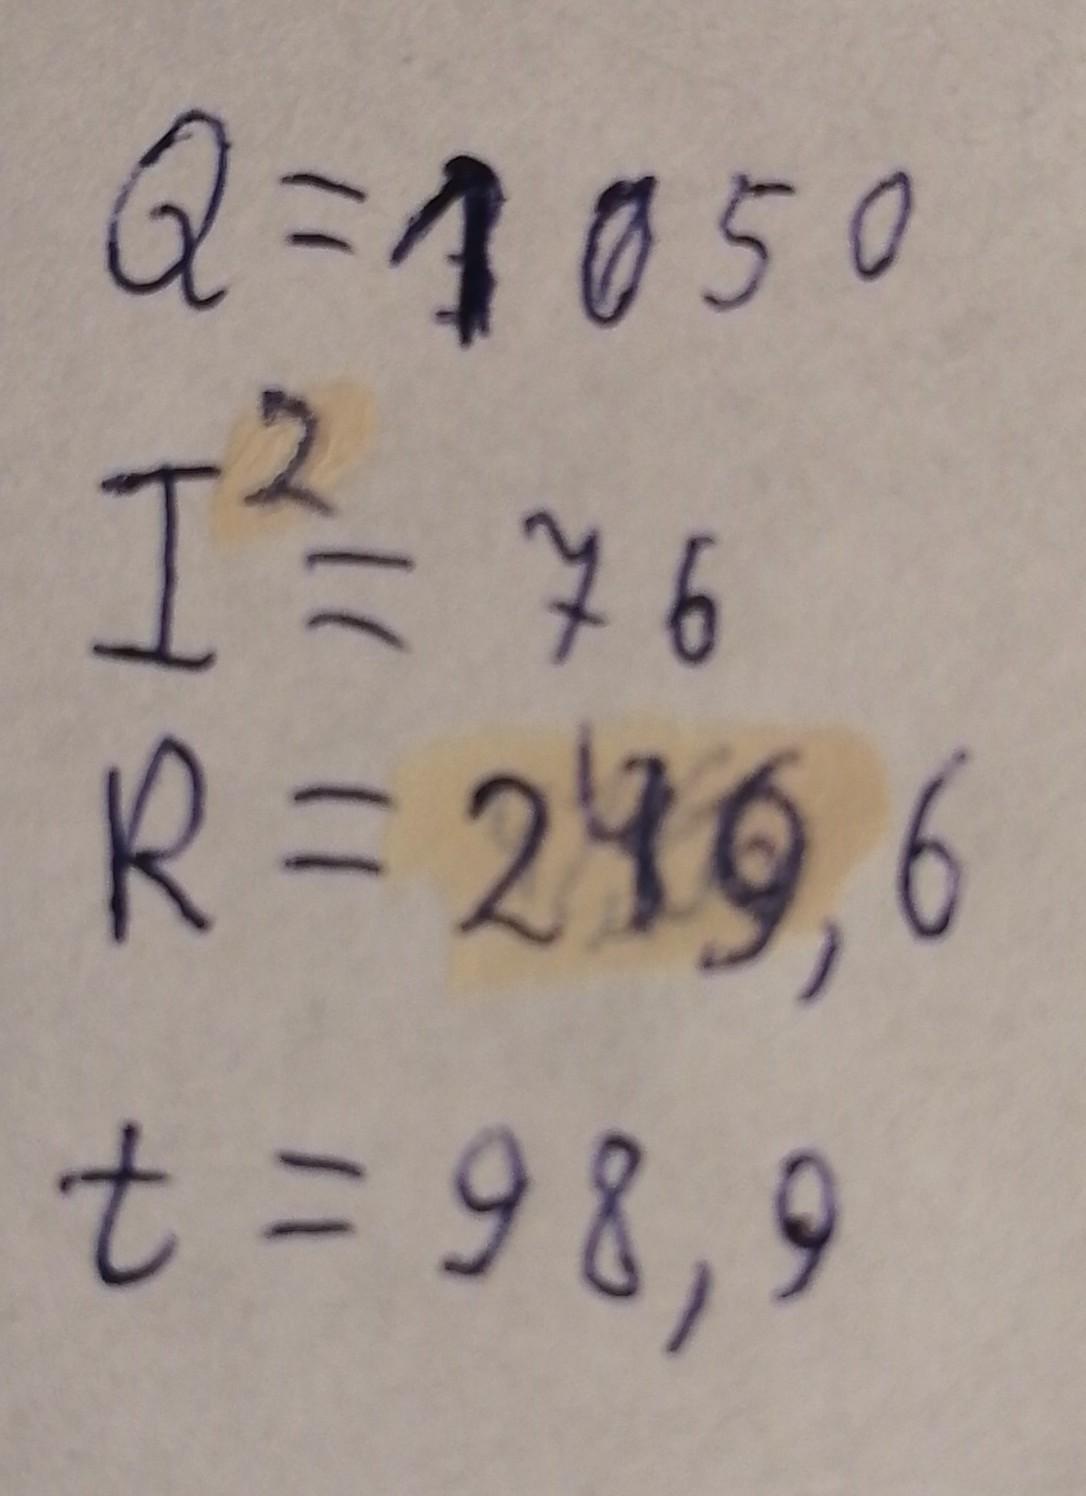 Q = 1050
I² = 76
R = 219,6
t = 98,9